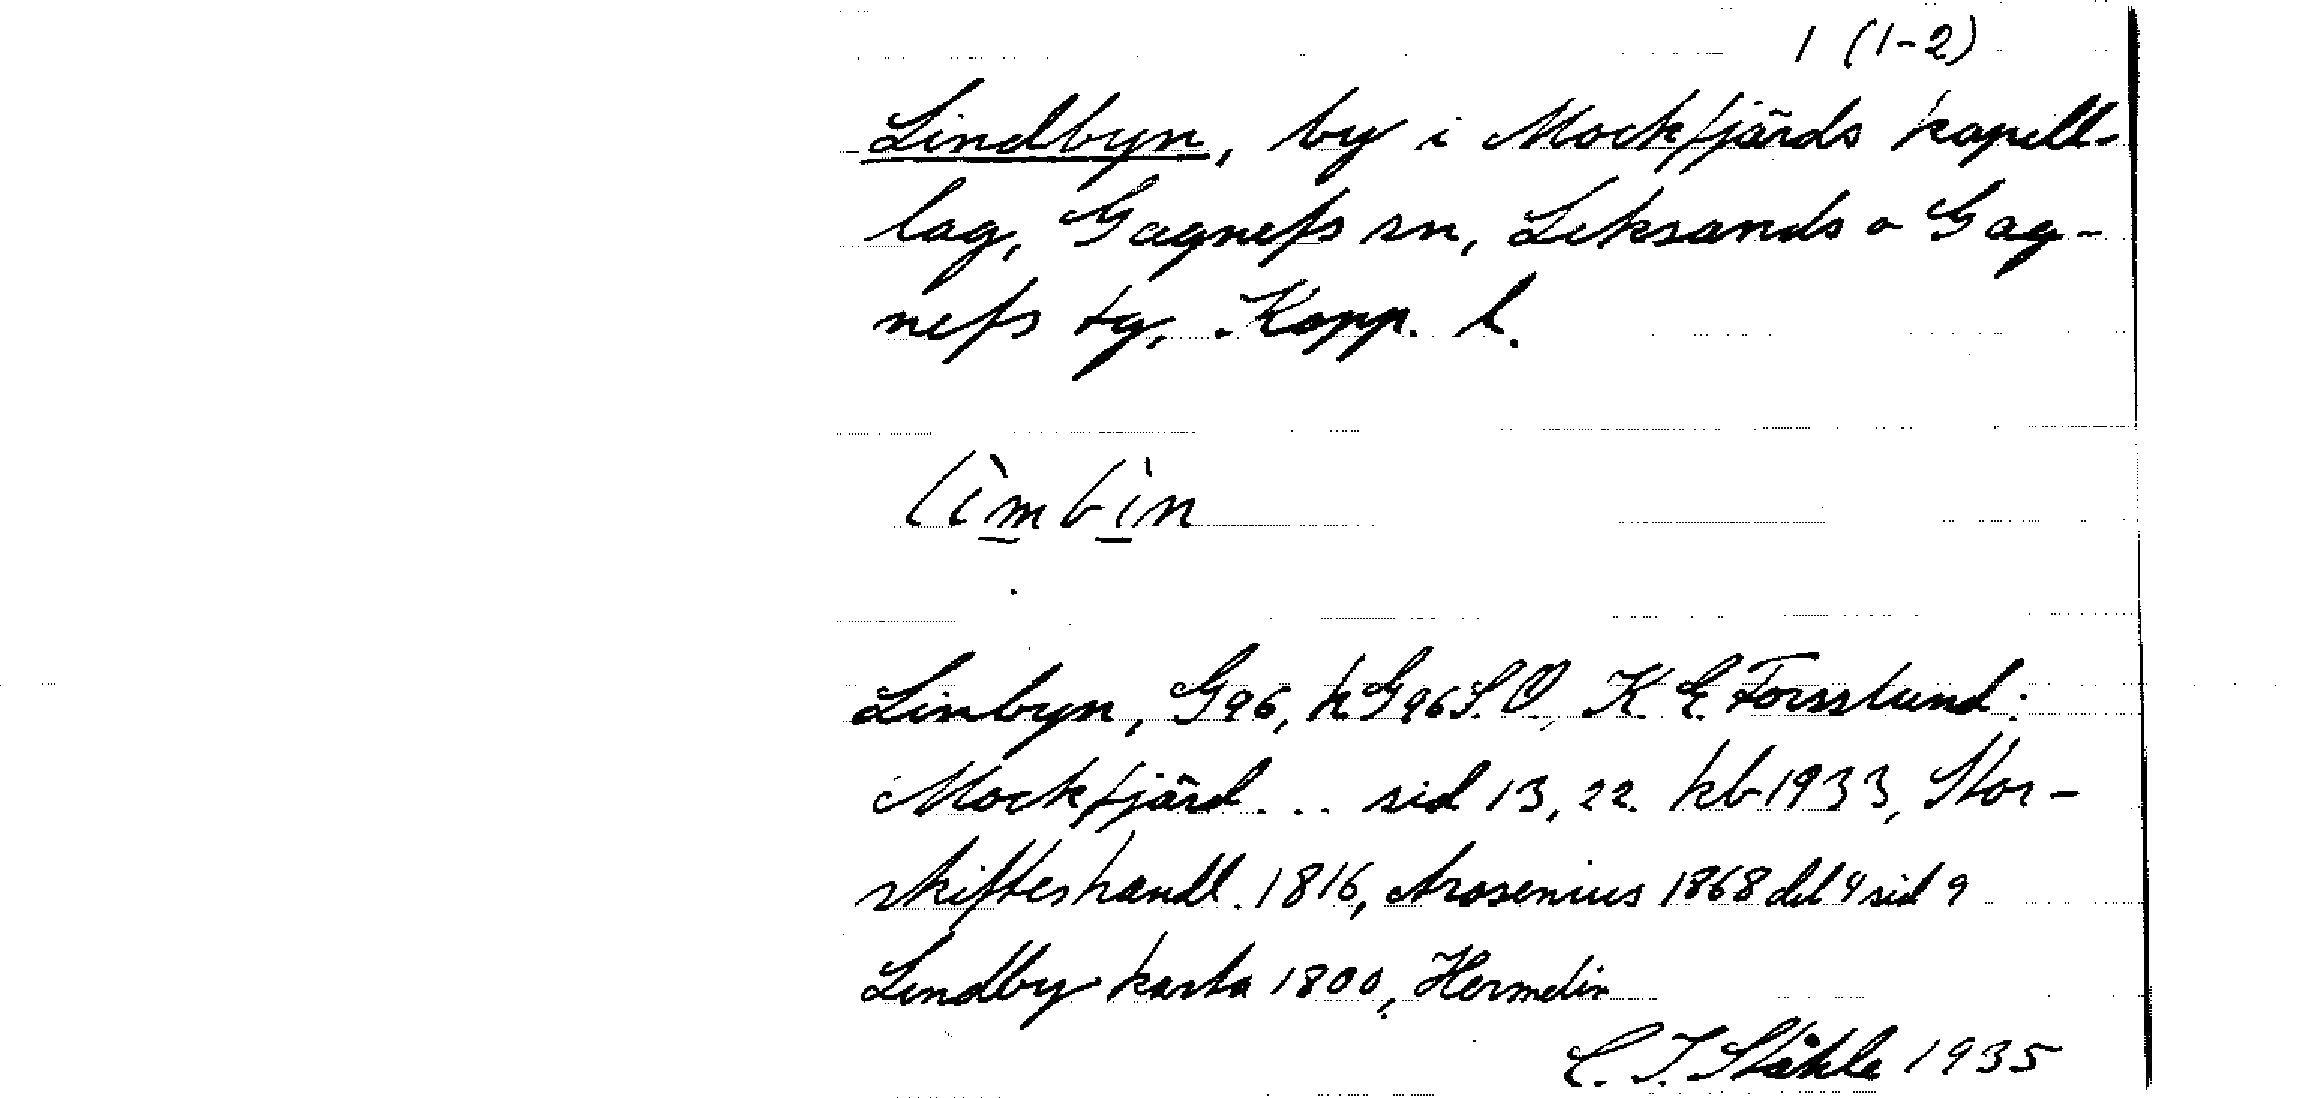 1 (1-2)
Lindbyn, by i Mockfjärds kapell-
lag, Gagnefs sn, Leksands o Gag-
nefs tg, Kopp. l.
lìmbìn
Linbyn, G96, kG96S.O, K. E. Forsslund:
Mockfjärd... sid 13, 22. kb 1933, Stor-
skifteshandl. 1816, Arosenius 1868 del 9 sid 9
Lindby karta 1800, Hermelin
C. I. Ståhle 1935